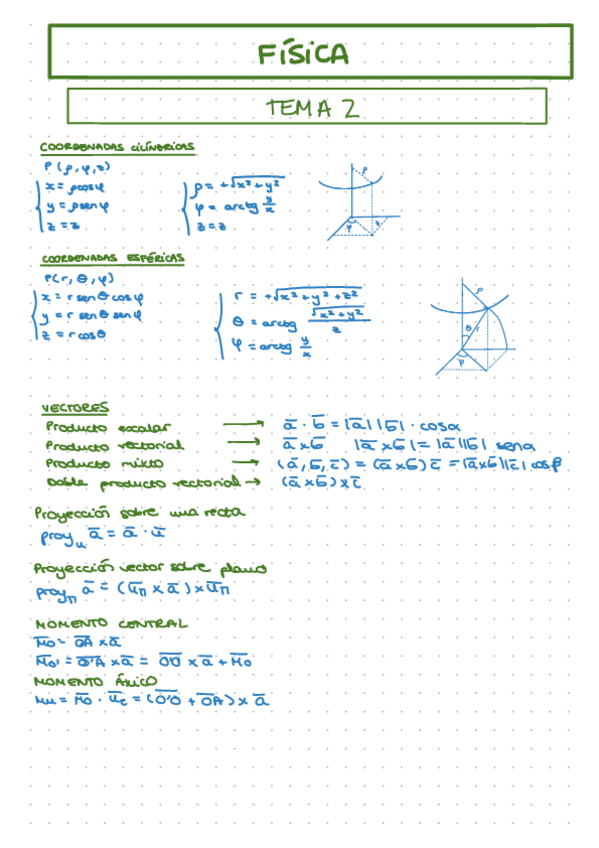 FÍSICA
TEMA 2
COORDENADAS CILÍNDRICAS
P (ρ, φ, z)
x = ρcosφ
y = ρsenφ
z = z
ρ = +√x²+y²
φ = arctg y/x
z = z
ρ
φ
COORDENADAS ESFÉRICAS
P(r, θ, φ)
x = r senθ cosφ
y = r senθ senφ
z = r cosθ
r = +√x² + y² + z²
θ = arctg √x²+y² / z
φ = arctg y/x
ρ
θ r
φ
VECTORES
Producto escalar → a̅ · b̅ = |a̅| |b̅| · cosα
Producto vectorial → a̅ x b̅ |a̅ x b̅| = |a̅| |b̅| senα
Producto mixto → (a̅, b̅, c̅) = (a̅ x b̅) c̅ = |a̅ x b̅| |c̅| cosβ
Doble producto vectorial → (a̅ x b̅) x c̅
Proyección sobre una recta
proyᵤ a̅ = a̅ · u̅
Proyección vector sobre plano
proy_π a̅ = (u̅_π x a̅) x u̅_π
MOMENTO CENTRAL
M̅o = O̅A̅ x a̅
M̅o' = O̅'A̅ x a̅ = O̅'O̅ x a̅ + M̅o
MOMENTO ÁXICO
Mu = M̅o · u̅_c = (O̅'O̅ + O̅A̅) x a̅